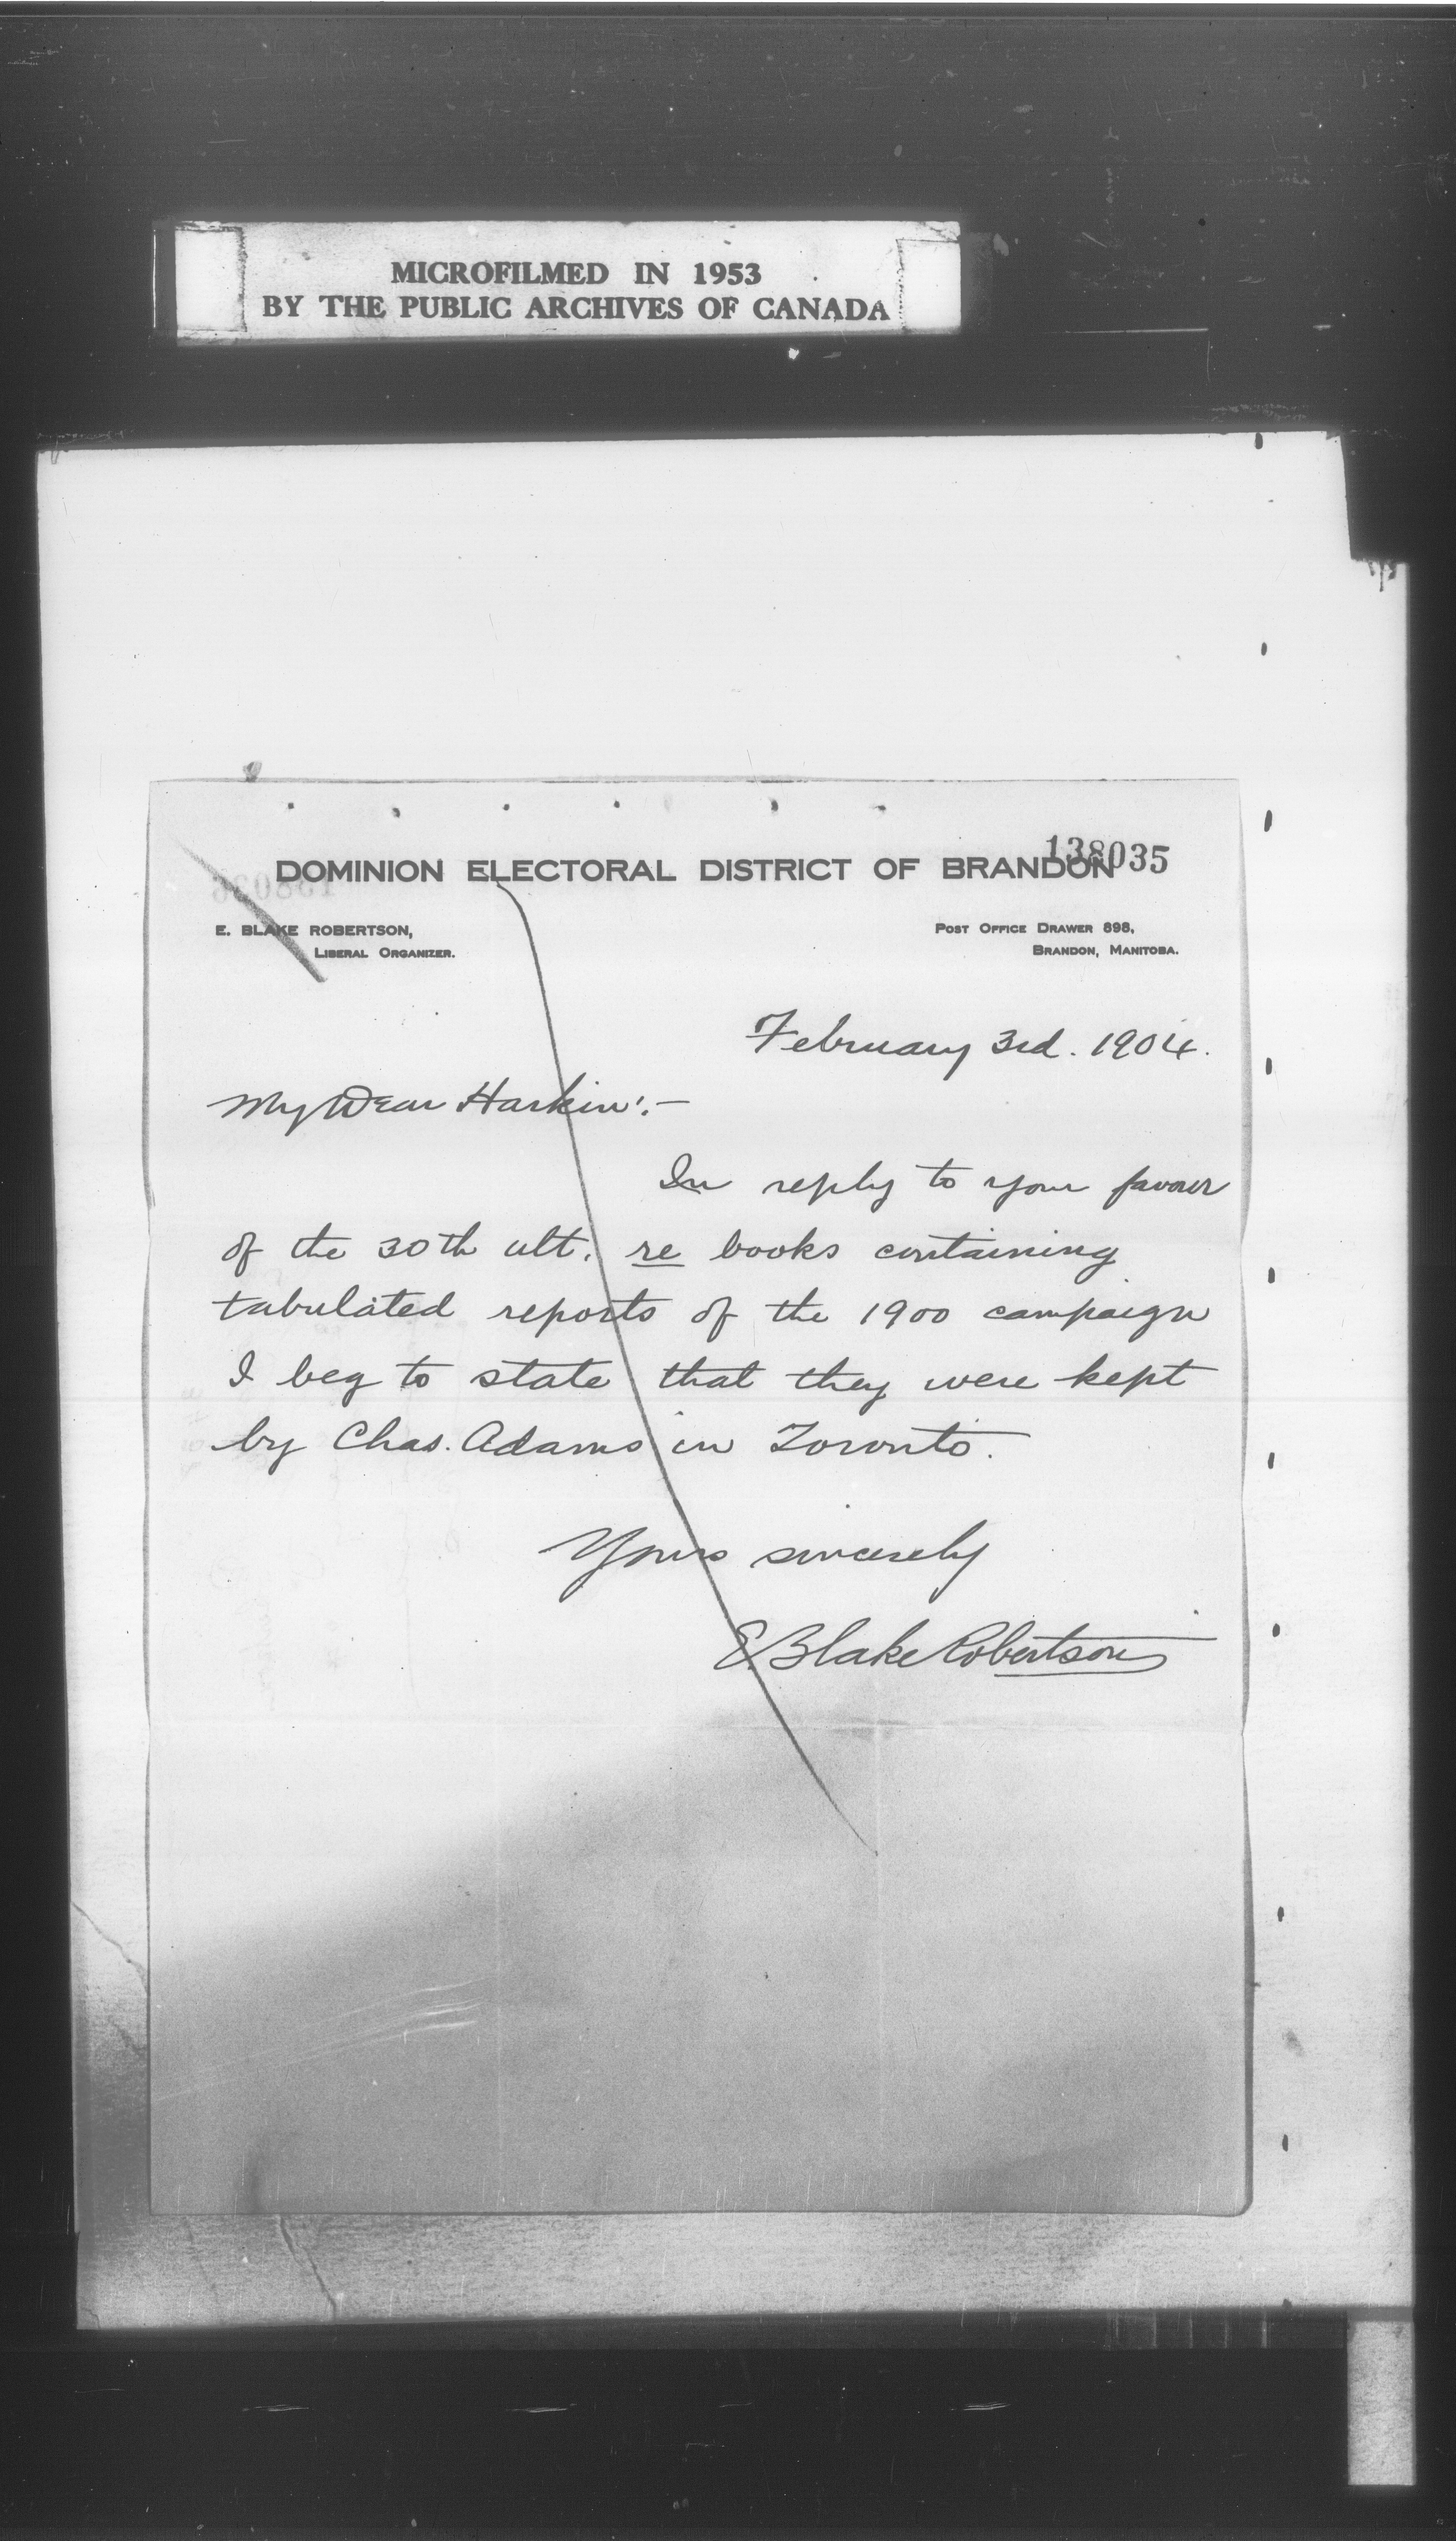 MICROFILMED IN 1953
BY THE PUBLIC ARCHIVES OF CANADA
138035
DOMINION ELECTORAL DISTRICT OF BRANDON
E. BLAKE ROBERTSON,
LIBERAL ORGANIZER.
POST OFFICE DRAWER 898,
BRANDON, MANITOBA.
February 3rd. 1904.
My Dear Harkin:-
In reply to your favour
of the 30th ult. re books containing
tabulated reports of the 1900 campaign
I beg to state that they were kept
by Chas. Adams in Toronto.
Yours sincerely
E. Blake Robertson